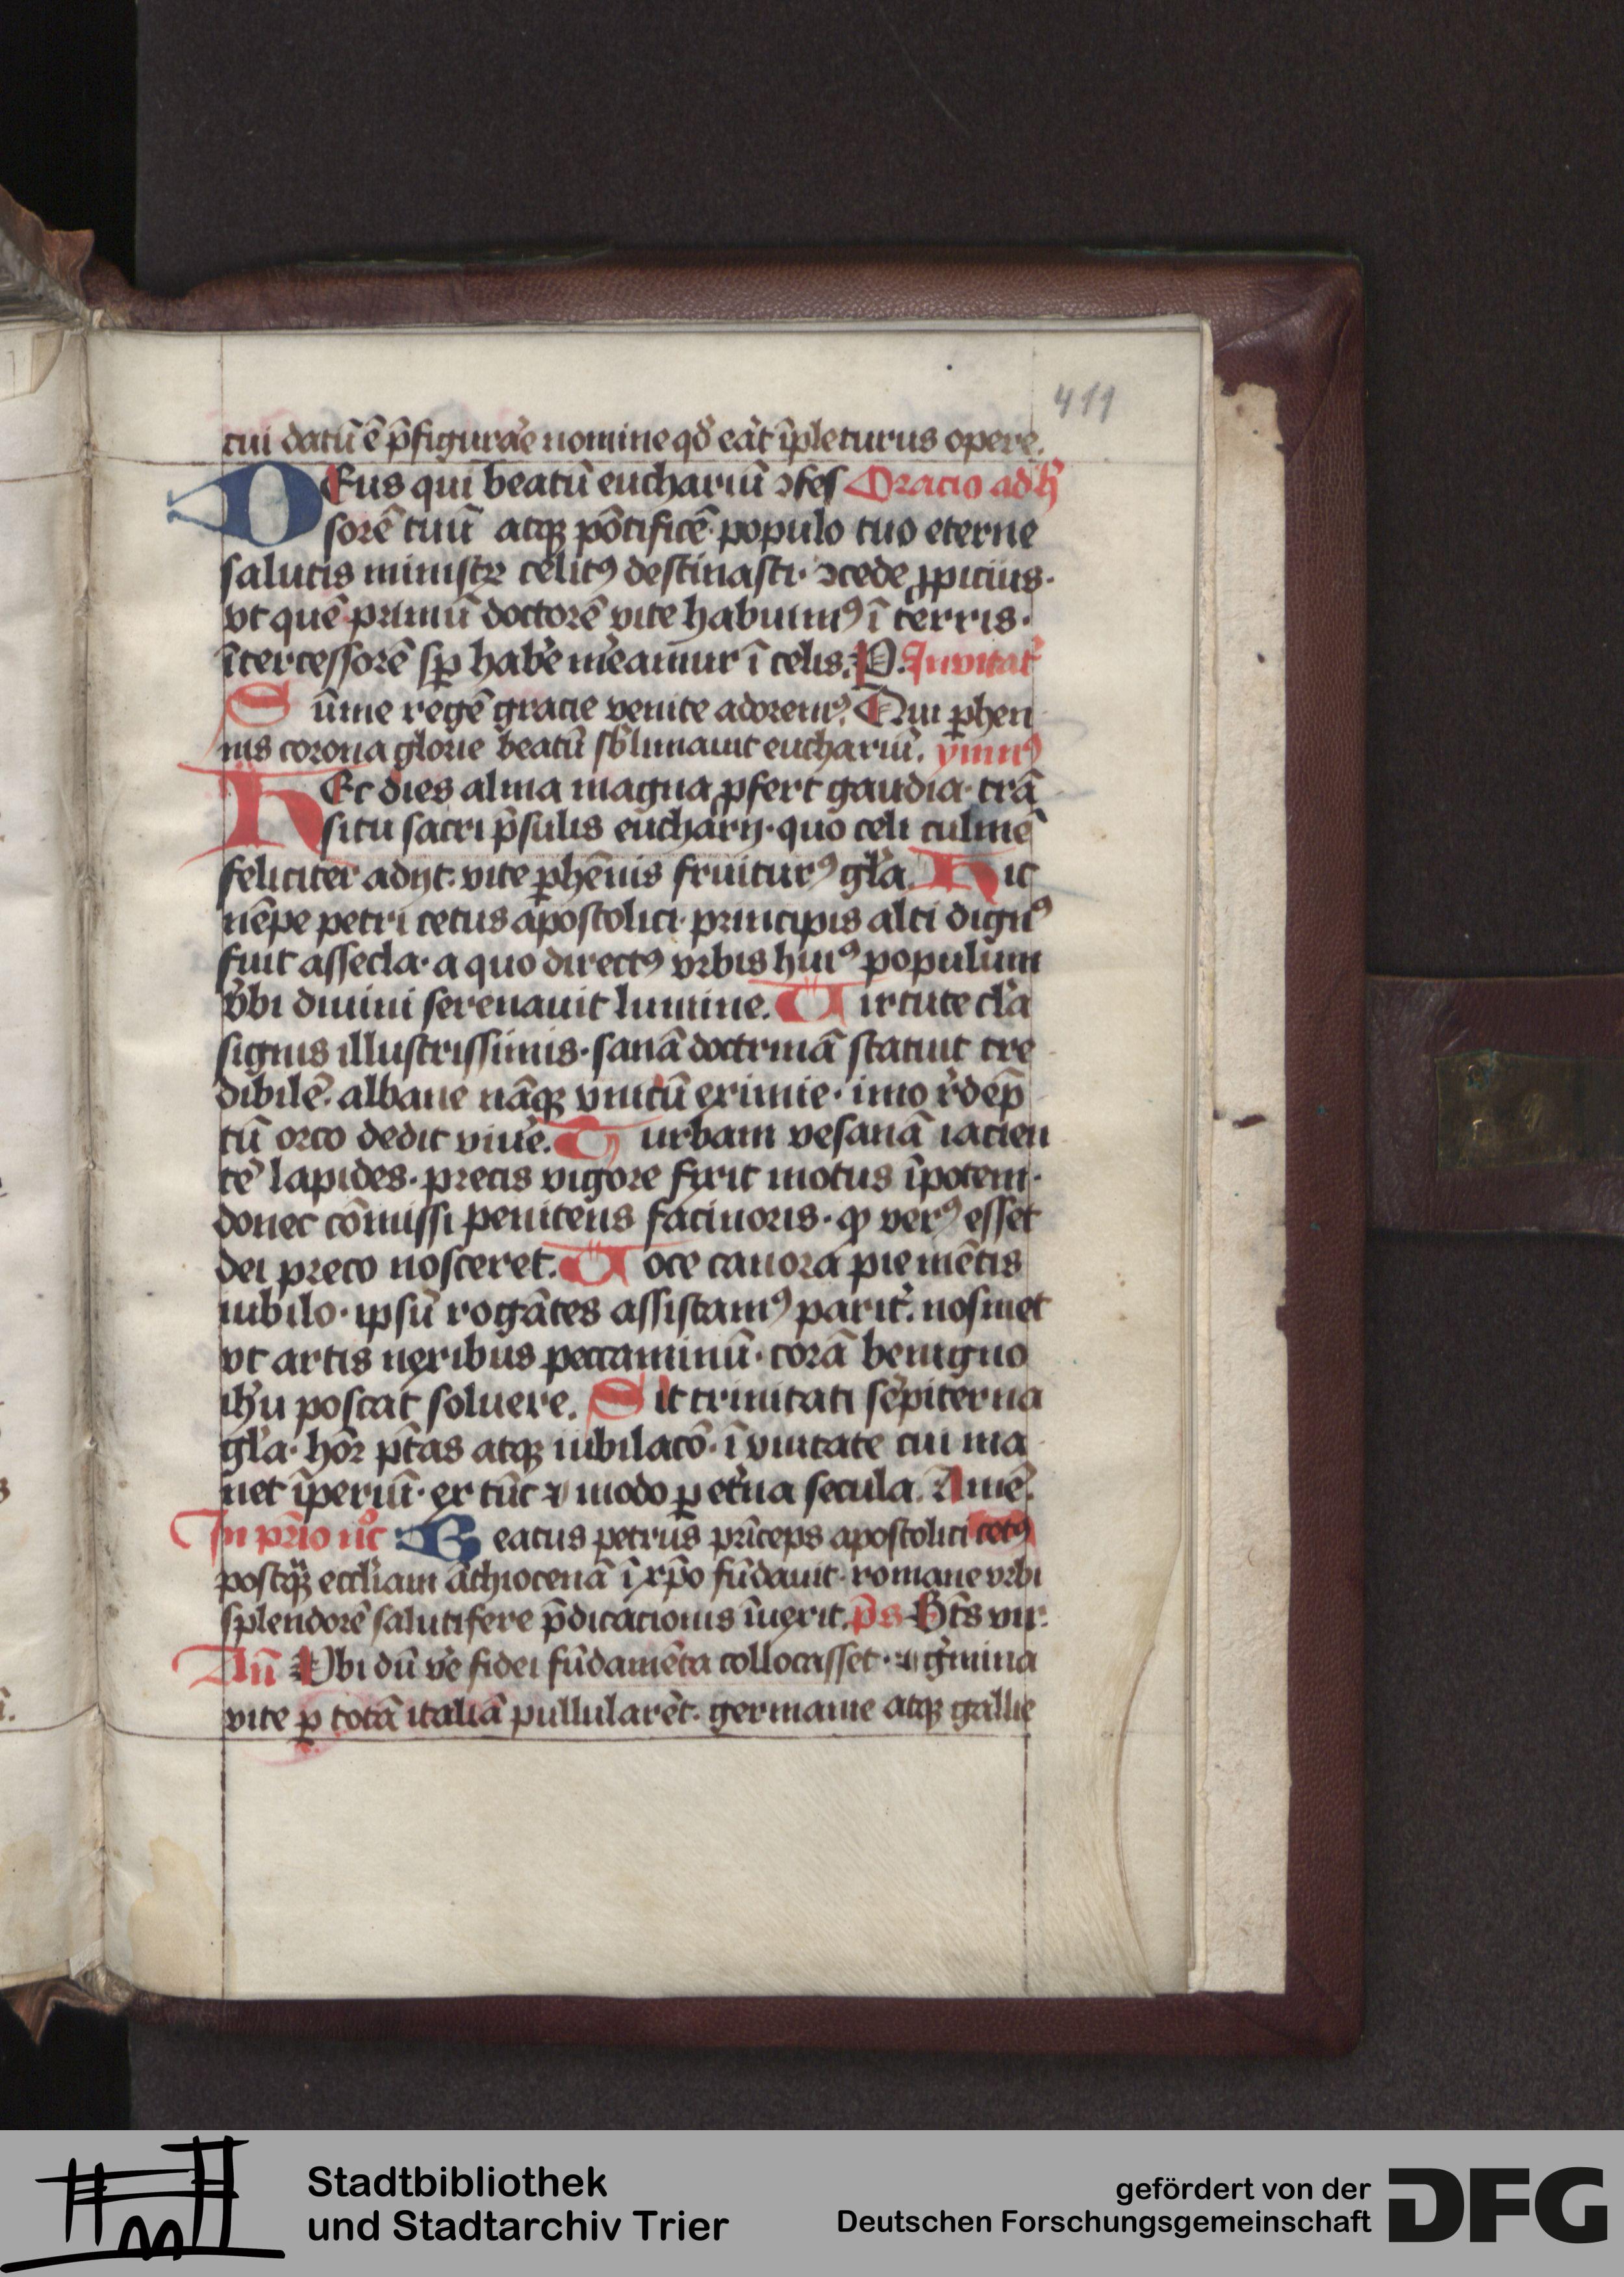 411
cui datū ē p̄figurar̄e nomine qd̄ eāt īpleturus opere.
DEus qui beatū euchariū ↄfes Oracio ad h̄
sorē tuū atqꝫ pōtificē populo tuo eterne
salutis ministꝝ celitꝰ destinasti· ↄcede ꝓpicius·
vt quē primū doctorē vite habuimꝰ ī terris·
ītercessorē sꝑ habe᷑ me᷑amur ī celis. P. Inuitat᷑
Sūme regē gracie venite adoremꝰ. Qui ꝑhen
nis corona glorie beatū sb̄limauit euchariū. ymnꝰ
HEc dies alma magna ꝓfert gaudia· trā
situ sacri p̄sulis eucharij· quo celi culmē
feliciter adijt· vite ꝑhēnis fruiturꝰ gl̄a. Hic
nēpe petri cetus apostolici· principis alti dignꝰ
fuit assecla· a quo directꝰ vrbis huiꝰ populum
v᷑bi diuini serenauit lumine. Uirtute cl̄a
signis illustrissimis· sanā doctrinā statuit cre
dibilē· albane nāqꝫ vnicū eximie· imo r᷑dēp
tū orco dedit viue᷑. Turbam vesanā iacien
tē lapides· precis vigore fixit motus īpotem·
donec cōmissi penitens facinoris· ꝙ verꝰ esset
dei preco nosceret. Uoce canora pie mētis
iubilo· ipsū rogātes assistamꝰ parit᷑· nosmet
vt artis nexibus peccaminū· corā benigno
ih̄u poscat soluere. Sit trinitati sēpiterna
gl̄a· hōꝛ p̄tas atqꝫ iubilacō· ī vnitate cui ma
net īperiū· ex tūc ⁊ modo ꝑ et᷑na secula. Amē.
In prīo nc̊ Beatus petrus prīceps apostolici cetꝰ
postqꝫ̄ eccl̄iam āthiocenā ī xp̄o fūdauit· romane vrbi
splendorē salutifere p̄dicacionis īuexit. p̄s Bt̄s vir·
Añ Vbi dū ve᷑ fidei fūdamēta collocasset· ⁊ g᷑mina
vite ꝑ totā italiā pullularēt· germanie atqꝫ gallie
Stadtbibliothek
und Stadtarchiv Trier
gefördert von der
Deutschen Forschungsgemeinschaft
DFG